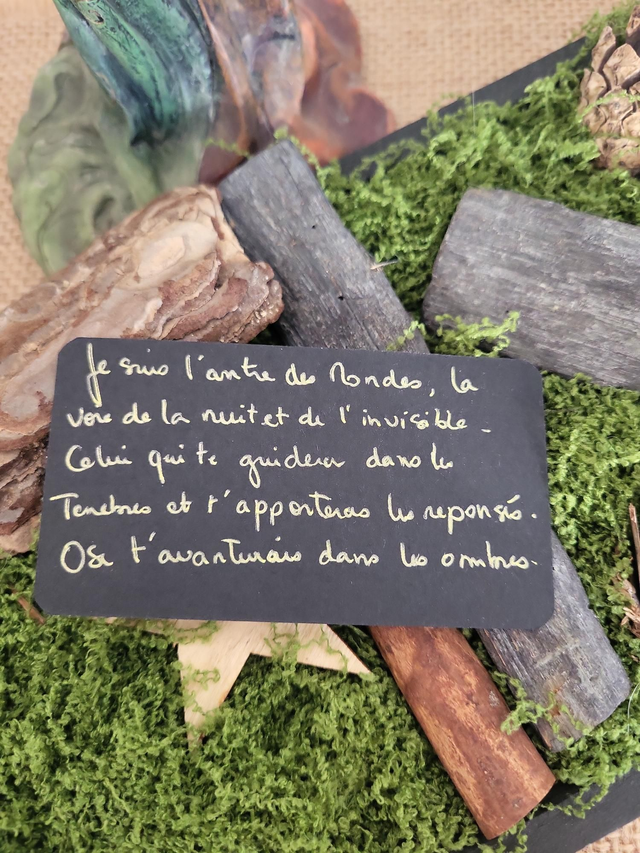 Je suis l'antre des Mondes, la
voie de la nuit et de l'invisible.
Celui qui te guidera dans les
Tenebres et t'apporteras les reponses.
Ose t'avanturais dans les ombres.